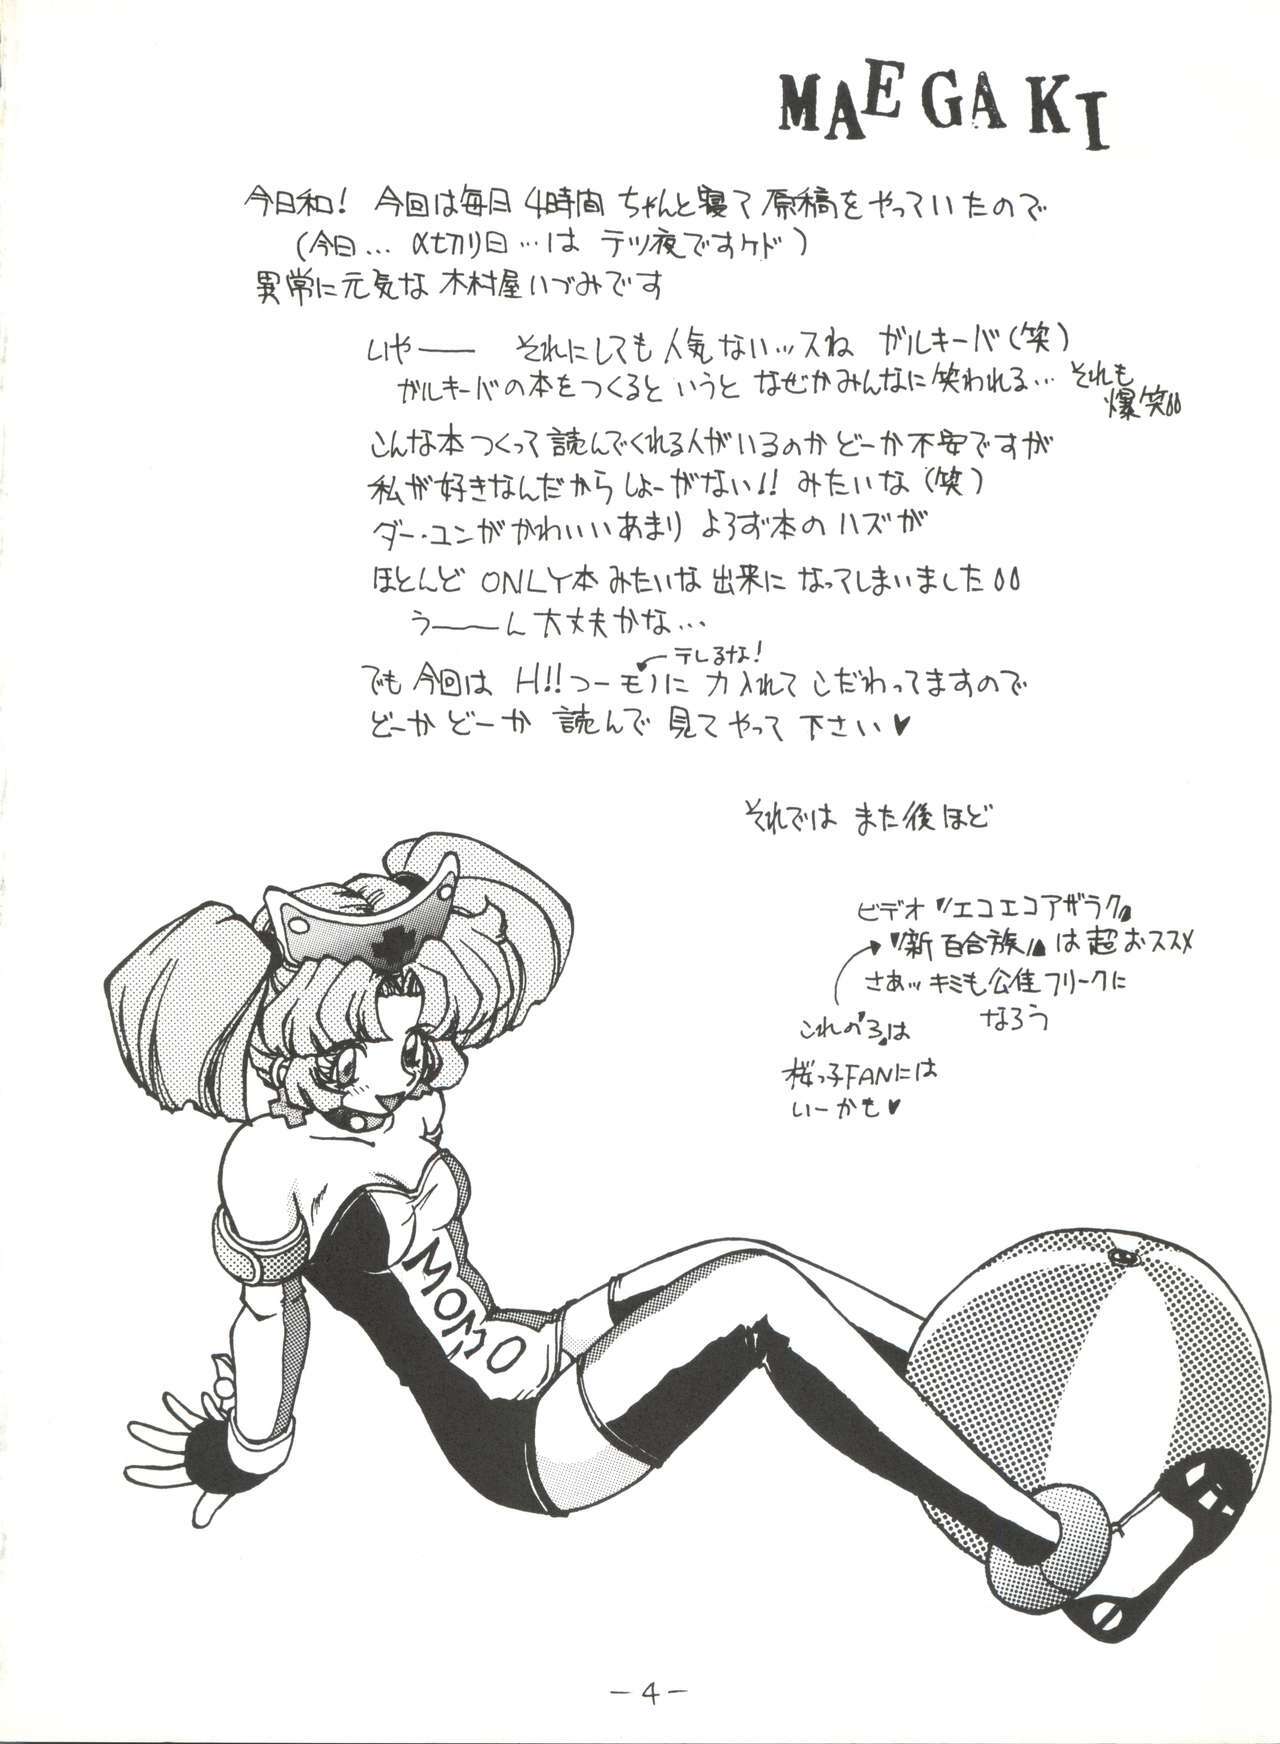 MAEGAKI
今日和! 今回は毎日 4時間 ちゃんと寝て 原稿を やっていたので
(今日… 〆切り日…は テツ夜ですケド)
異常に元気な 木村屋いづみです
いやー それにしても 人気ないッスね ガルキーバ(笑)
ガルキーバの本をつくると いうと なぜかみんなに笑われる… それも
爆笑
こんな本 つくって 読んでくれる人がいるのか どーか不安ですが
私が好きなんだから しょーがない!! みたいな(笑)
ダー・ユンがかわいいあまり よろず本の ハズが
ほとんど ONLY本 みたいな 出来に なってしまいました
うーーん 大丈夫かな…
テレるな!
でも 今回は H!! つーモノに 力入れて こだわってますので
どーか どーか 読んで 見て やって 下さい♥
それでは また後ほど
ビデオ『エコエコアザラク』
『新 百合族』は 超おススメ
さぁッ キミも 公佳フリークに
なろう
これの3は
桜っ子FANには
いーかも♥
MOMO
-4-